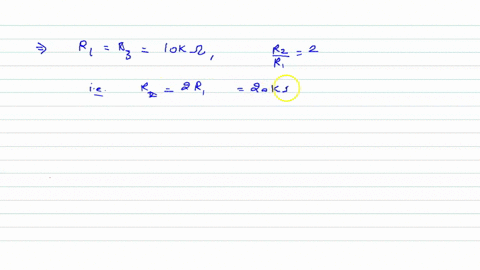 ⇒ R₁ = R₃ = 10K Ω, R₂/R₁ = 2
i.e. R₂ = 2R₁ = 20K